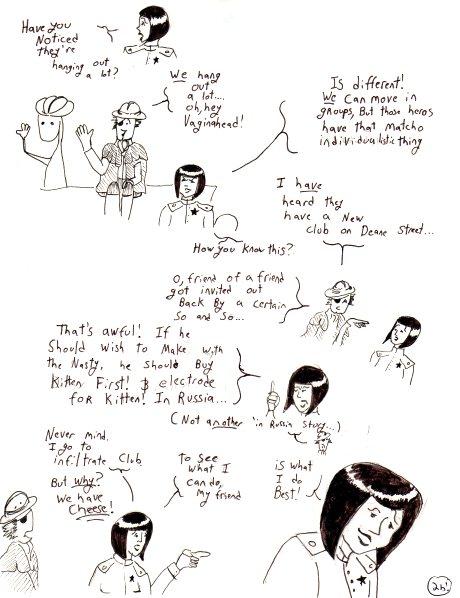 Have you
Noticed
they're
hanging out
a lot?
We hang
out
a lot...
oh, hey
Vaginahead!
Is different!
We Can move in
groups, But those heros
have that matcho
individualistic thing
I have
heard they
have a New
club on Deane Street...
How you know this?
O, friend of a friend
got invited out
Back By a certain
So and So...
That's awful! If he
Should wish to Make with
the Nasty, he should Buy
Kitten First! & electrode
for Kitten! In Russia...
(Not another "in Russia story...)
Never mind.
I go to
infiltrate club
But why?
We have
Cheese!
to see
what I
can do,
my friend
is what
I do
Best!